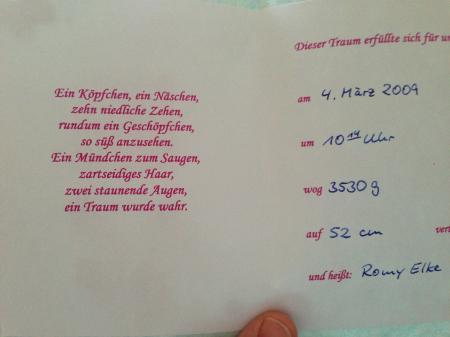 Ein Köpfchen, ein Näschen,
zehn niedliche Zehen,
rundum ein Geschöpfchen,
so süß anzusehen.
Ein Mündchen zum Saugen,
zartseidiges Haar,
zwei staunende Augen,
ein Traum wurde wahr.
Dieser Traum erfüllte sich für
am 4. März 2009
um 10 14 Uhr
wog 3530 g
auf 52 cm
und heißt: Romy Elke